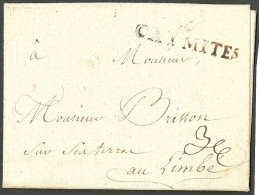 CAYMITES
à Monsieur,
Monsieur Brisson
sur sa terre
au Limbé